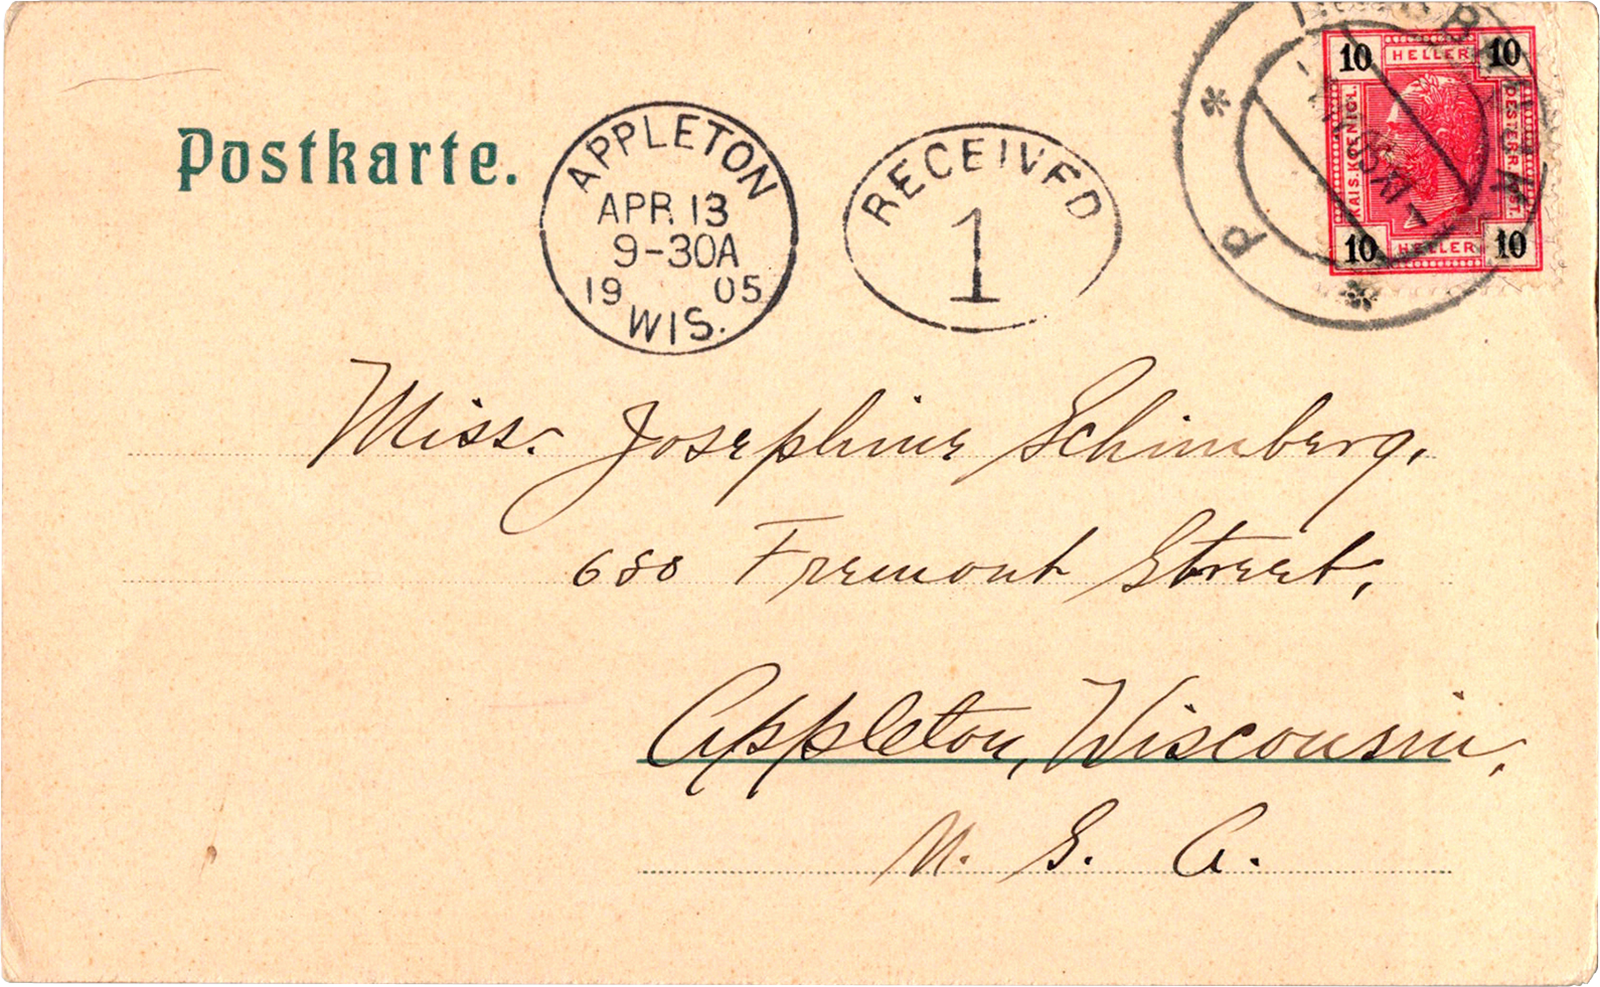 Postkarte.
APPLETON
APR. 13
9-30A
19 05
WIS.
RECEIVED
1
10 HELLER 10
KAIS.KOENIGL. OESTERR.POST.
10 HELLER 10
Miss. Josephine Schimberg,
680 Fremont Street,
Appleton, Wisconsin,
U. S. A.